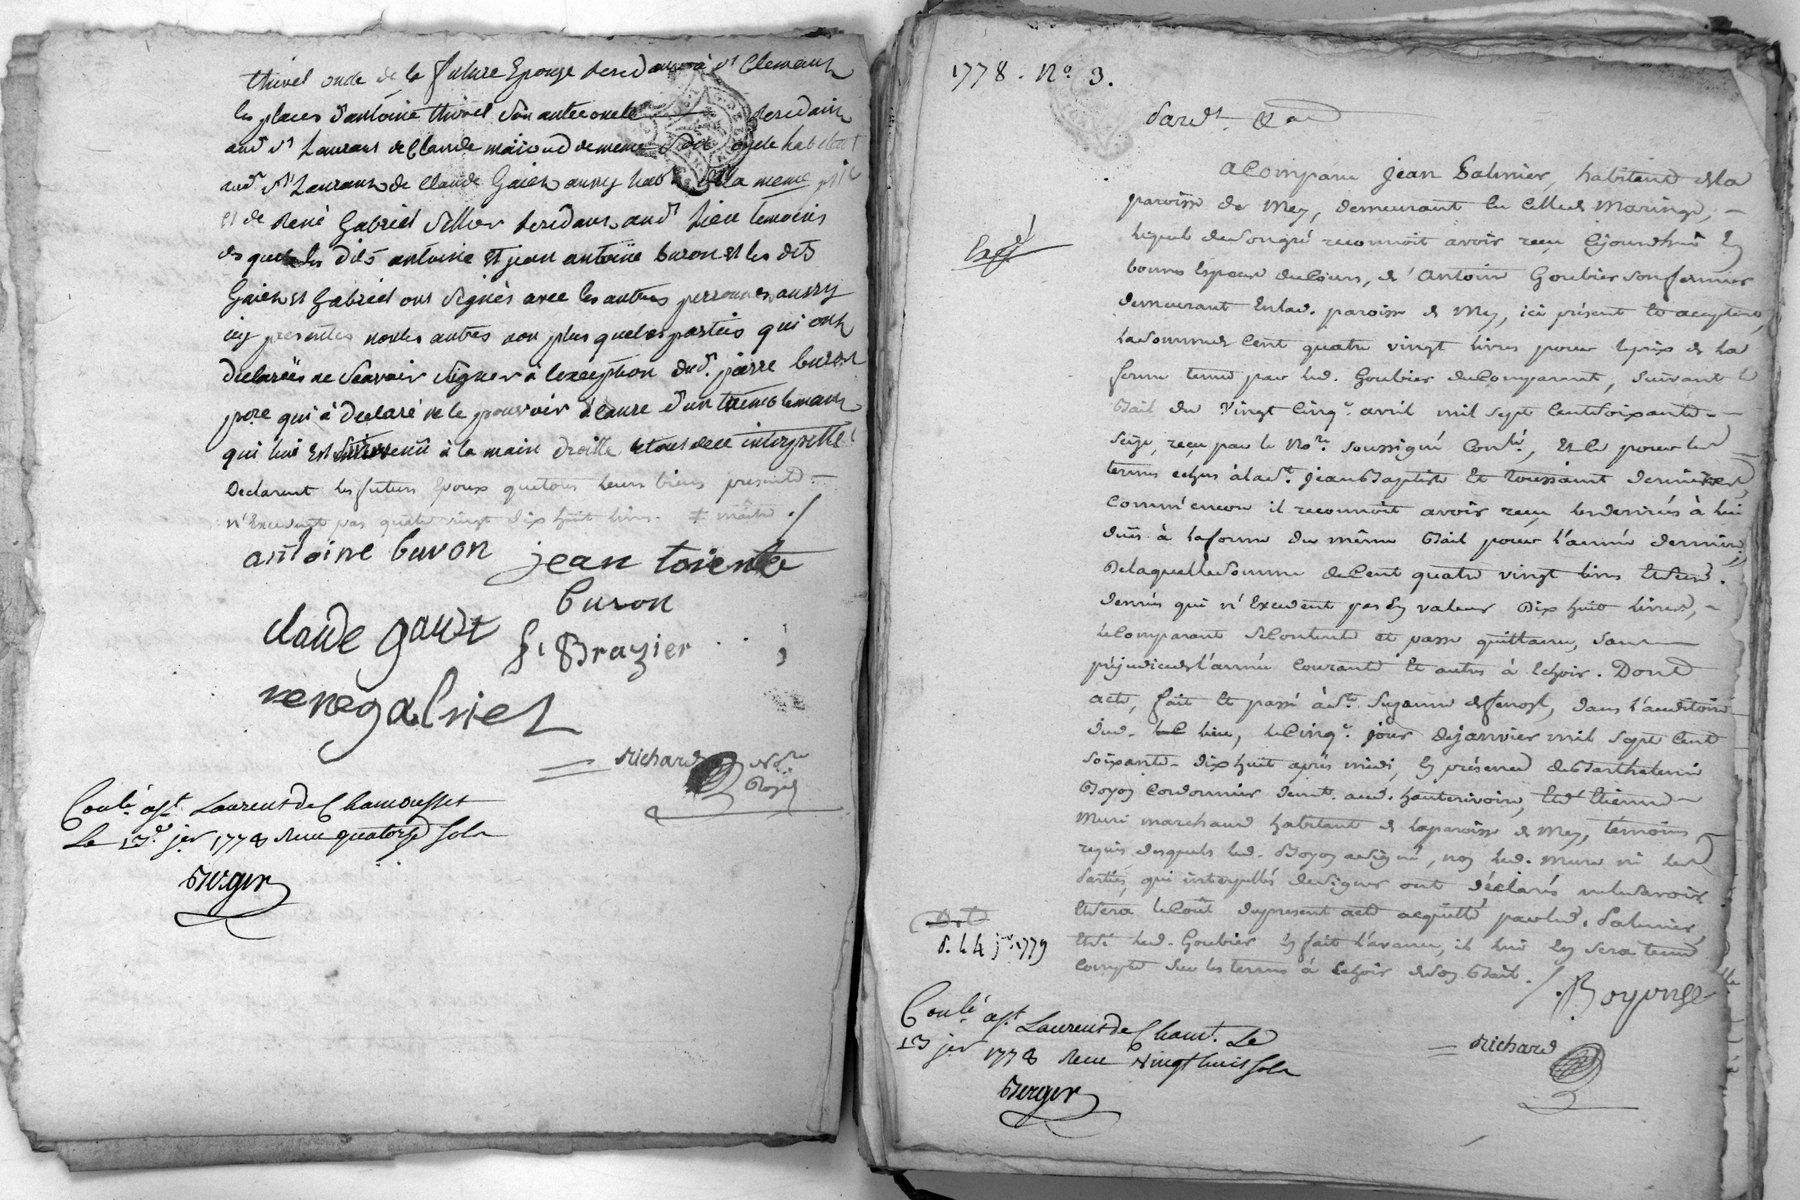 thivel oncle de la future Epouze residant à st Clemant
les places d'antoine thivel son autre oncle residant
aud. st Laurans de Claude maisod de meme oncle habitant
aud. st Laurans de Claude Gaien aussy hab de la meme
et de René Gabriel residant aud. lieu temoins
des quels les dits antoine et jean antoine buron et les dts
Gaien et Gabriel ont signés avec les autres personnes aussy
icy presentes non les autres non plus que les parties qui ont
declarées ne scavoir signer à l'exception dud. pierre buron
pere qui à declaré ne le pouvoir à cause d'un tremblemans
qui lui est survenu à la main droitte de ce interpellé
Declarant les futurs Epoux que tous leurs biens presents
n'Excedent pas quatre vingt dix huit livres.
antoine buron jean toiente
buron
claude gaut
Brazier
rene gabriel
Richard Nre
Royal
Conlé à st. Laurent de Chamousset
Le 13e jer 1778 Reçu quatorze sols
Berger
1778. No. 3.
Pardt.
A Comparu Jean Salmier, habitant de la
paroisse de Mey, demeurant au lieu de Maringe,
lequel de son gré reconnoit avoir reçu cejourd'hui En
bonnes Especes de Cours, d'Antoine Goubier son fermier
demeurant En lad. paroisse de Mey, ici présent et acceptant,
la somme de Cent quatre vingt livres pour le prix de la
ferme tenue par led. Goubier du Comparant, suivant le
Bail du Vingt Cinqe. avril mil sept Cent Soixante
Seize, reçu par le Nre. soussigné Conlé, Et ce pour les
termes echus à la st. Jean Baptiste Et Toussaint derniere,
Comm'encore il reconnoit avoir reçu les denrées à lui
dues à la forme du même Bail pour l'année derniere,
De laquelle somme de Cent quatre vingt livres Et desd.
denrées qui n'Excedent pas En valeur Dix huit livres,
le Comparant se Contente et passe quittance, sans
préjudice de l'année Courante Et autres à Echoir. Dont
acte, fait Et passé à Ste. Suzanne, dans l'auditoire
dud. lieu, le Cinqe. jour de janvier mil sept Cent
soixante-dix huit après midi, En présence de Barthelemi
Boyon Cordonnier demt. aud. hauterivoire, Et d'Etienne
Mure marchand habitant de la paroisse de Mey, temoins
requis desquels led. Boyon a signé, non led. Mure ni les
Parties, qui interpellés de signer ont déclarés ne le savoir.
Et sera le Coût du present acte acquitté par led. Salmier,
Et si led. Goubier En fait l'avance, il lui En sera tenu
Compte sur les termes à Echoir de son Bail.
d. l. 4 jer. 1779
Boyon
Richard
Conlé à st Laurent de Chamt. Le
13 jer 1778 Reçu Vingt huit sols
Berger